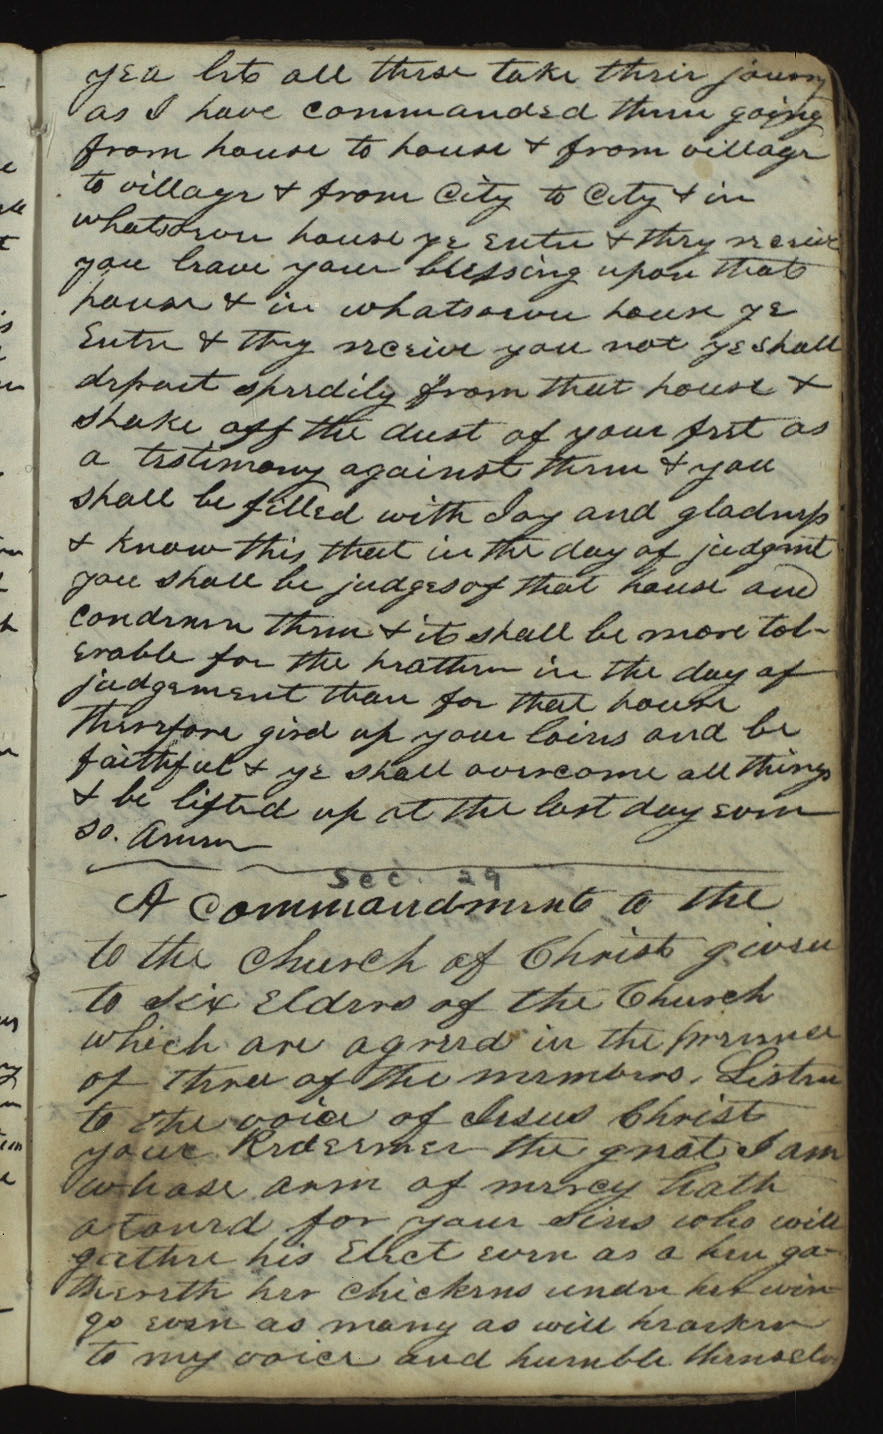 yea let all these take their journy
as I have commanded them going
from house to house & from village
to village & from City to City & in
whatsoever house ye enter & they receive
you leave your blessing upon that
house & in whatsoever house ye
Enter & they receive you not ye shall
depart speedily from that house &
shake off the dust of your feet as
a testimony against them & you
shall be filled with Joy and gladness
& know this that in the day of judgmt
you shall be judges of that house and
condemn them & it shall be more tol-
erable for the heathen in the day of
judgement than for that house
therefore gird up your loins and be
faithful & ye shall overcome all things
& be lifted up at the last day even
so. Amen
Sec. 29
A Commandment to the
to the Church of Christ given
to six Elders of the Church
which are agreed in the presence
of three of the members. Listen
to the voice of Jesus Christ
your Redeemer the great I am
whose arm of mercy hath
atoned for your sins who will
gather his Elect even as a hen ga-
thereth her chickens under her win
gs even as many as will hearken
to my voice and humble themselves